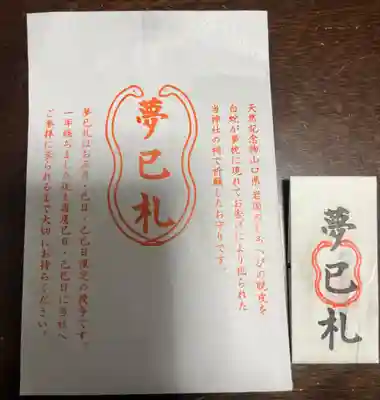 天然記念物山口県岩国のしろへびの脱皮を
白蛇が夢枕に現れてお告げにより授られた
当神社の祠で祈願したお守りです。
夢巳札
夢巳札はお正月・巳日・己巳日限定の授与です。
一年経ちましたら毎月巳日・己巳日に当社へ
ご参拝に来られるまで大切にお持ちください。
夢巳札